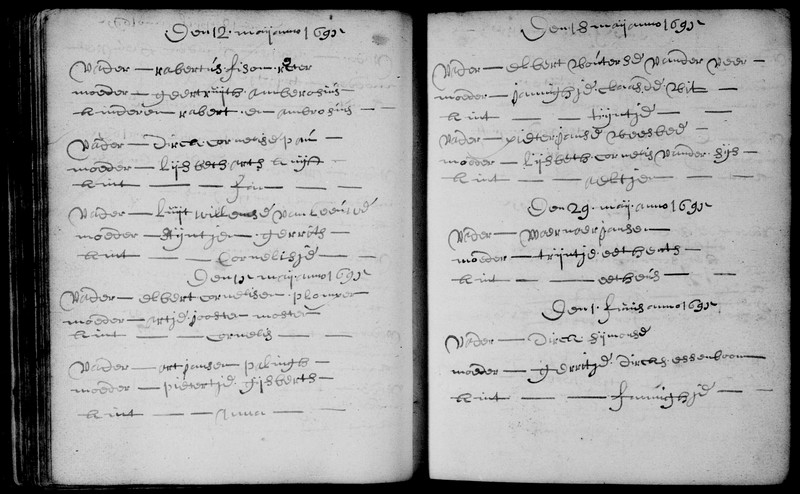 Den 12. maij anno 1695
Vader — rabertús fijom
moeder — geertruijth ambrosiús —
kinderen rabert en ambrosius — —
Vader — Dirck Cornelisse paú —
moeder — Lijsbeth arts kuijff —
kint — — Jan — —
Vader — Luijt willemse van Leeúwe
moeder — Trijntjen gerrits —
kint — — Cornelisje — —
Den maij anno 1695
Vader — elbert Cornelissen
moeder — artje joosten
kint — — cornelis —
Vader — art jansen palingh —
moeder — pietertje gijsberth —
kint — — Anna — —
Den 18 maij anno 1695
Vader — elbert Woúterse vander veer —
moeder — jannighje Claasse Wit —
kint — — trijntje —
Vader — pieter janse —
moeder — Lijsbeth Cornelis vander —
kint — — aeltje — —
Den 29. maij anno 1695
Vader — Waernaer jansen —
moeder — trijntje —
kint — — —
Den 1. Junij anno 1695
Vader — Dirck Sijmonse
moeder — gerritje Dircks essenboom
kint — — Jannighje —